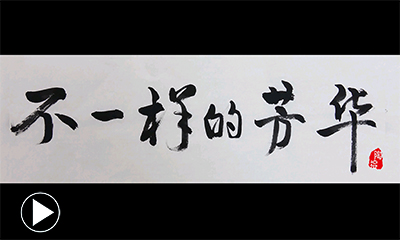 不一样的芳华